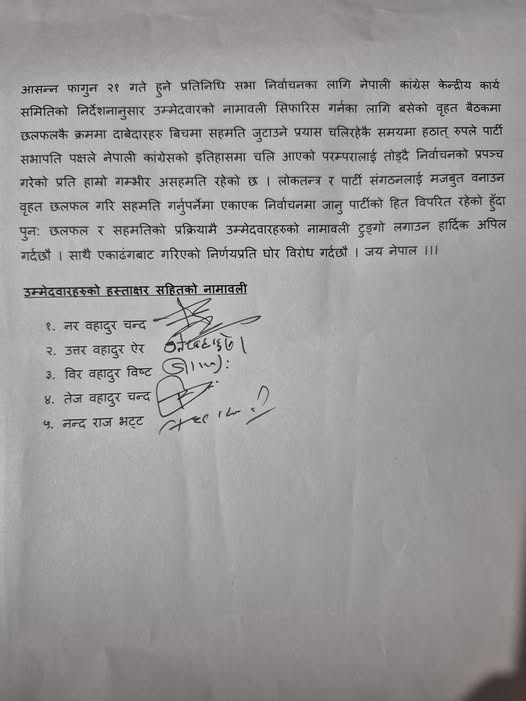 आसन्न फागुन २१ गते हुने प्रतिनिधि सभा निर्वाचनका लागि नेपाली कांग्रेस केन्द्रीय कार्य
समितिको निर्देशनानुसार उम्मेदवारको नामावली सिफारिस गर्नका लागि बसेको वृहत बैठकमा
छलफलकै क्रममा दाबेदारहरु बिचमा सहमति जुटाउने प्रयास चलिरहेकै समयमा हठात् रुपले पार्टी
सभापति पक्षले नेपाली कांग्रेसको इतिहासमा चलि आएको परम्परालाई तोड्दै निर्वाचनको प्रपञ्च
गरेको प्रति हामो गम्भीर असहमति रहेको छ । लोकतन्त्र र पार्टी संगठनलाई मजबुत वनाउन
वृहत छलफल गरि सहमति गर्नुपर्नेमा एकाएक निर्वाचनमा जानु पार्टीको हित विपरित रहेको हुँदा
पुन: छलफल र सहमतिको प्रक्रियामै उम्मेदवारहरुको नामावली टुङ्गो लगाउन हार्दिक अपिल
गर्दछौ । साथै एकाढंगबाट गरिएको निर्णयप्रति घोर विरोध गर्दछौ । जय नेपाल ।।।
उम्मेदवारहरुको हस्ताक्षर सहितको नामावली
१. नर वहादुर चन्द
२. उत्तर वहादुर ऐर
३. विर वहादुर विष्ट
४. तेज वहादुर चन्द
५. नन्द राज भट्ट